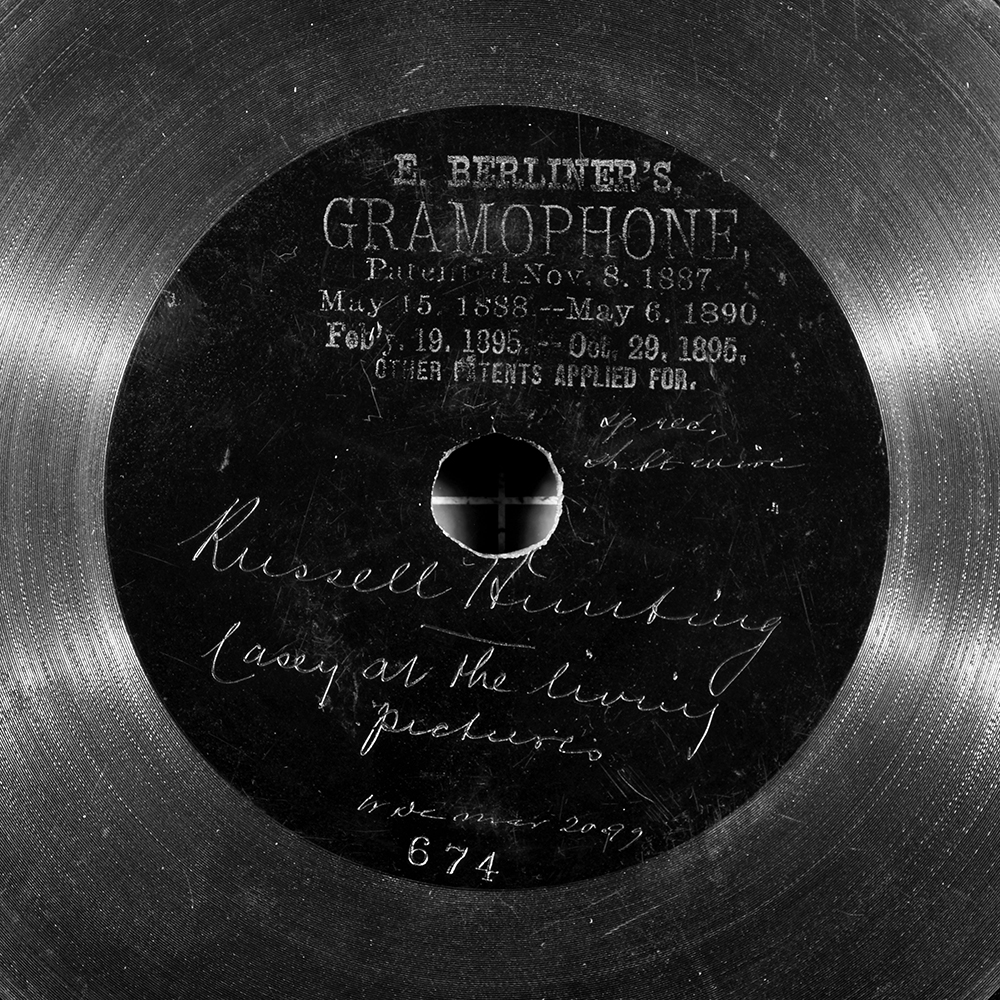 E. BERLINER'S.
GRAMOPHONE.
Patented Nov. 8. 1887.
May 15. 1888.--May 6. 1890.
Feb'y. 19. 1895.--Oct. 29. 1895.
OTHER PATENTS APPLIED FOR.
sp rec.
wire
Russell Hunting
Casey at the living
pictures
674